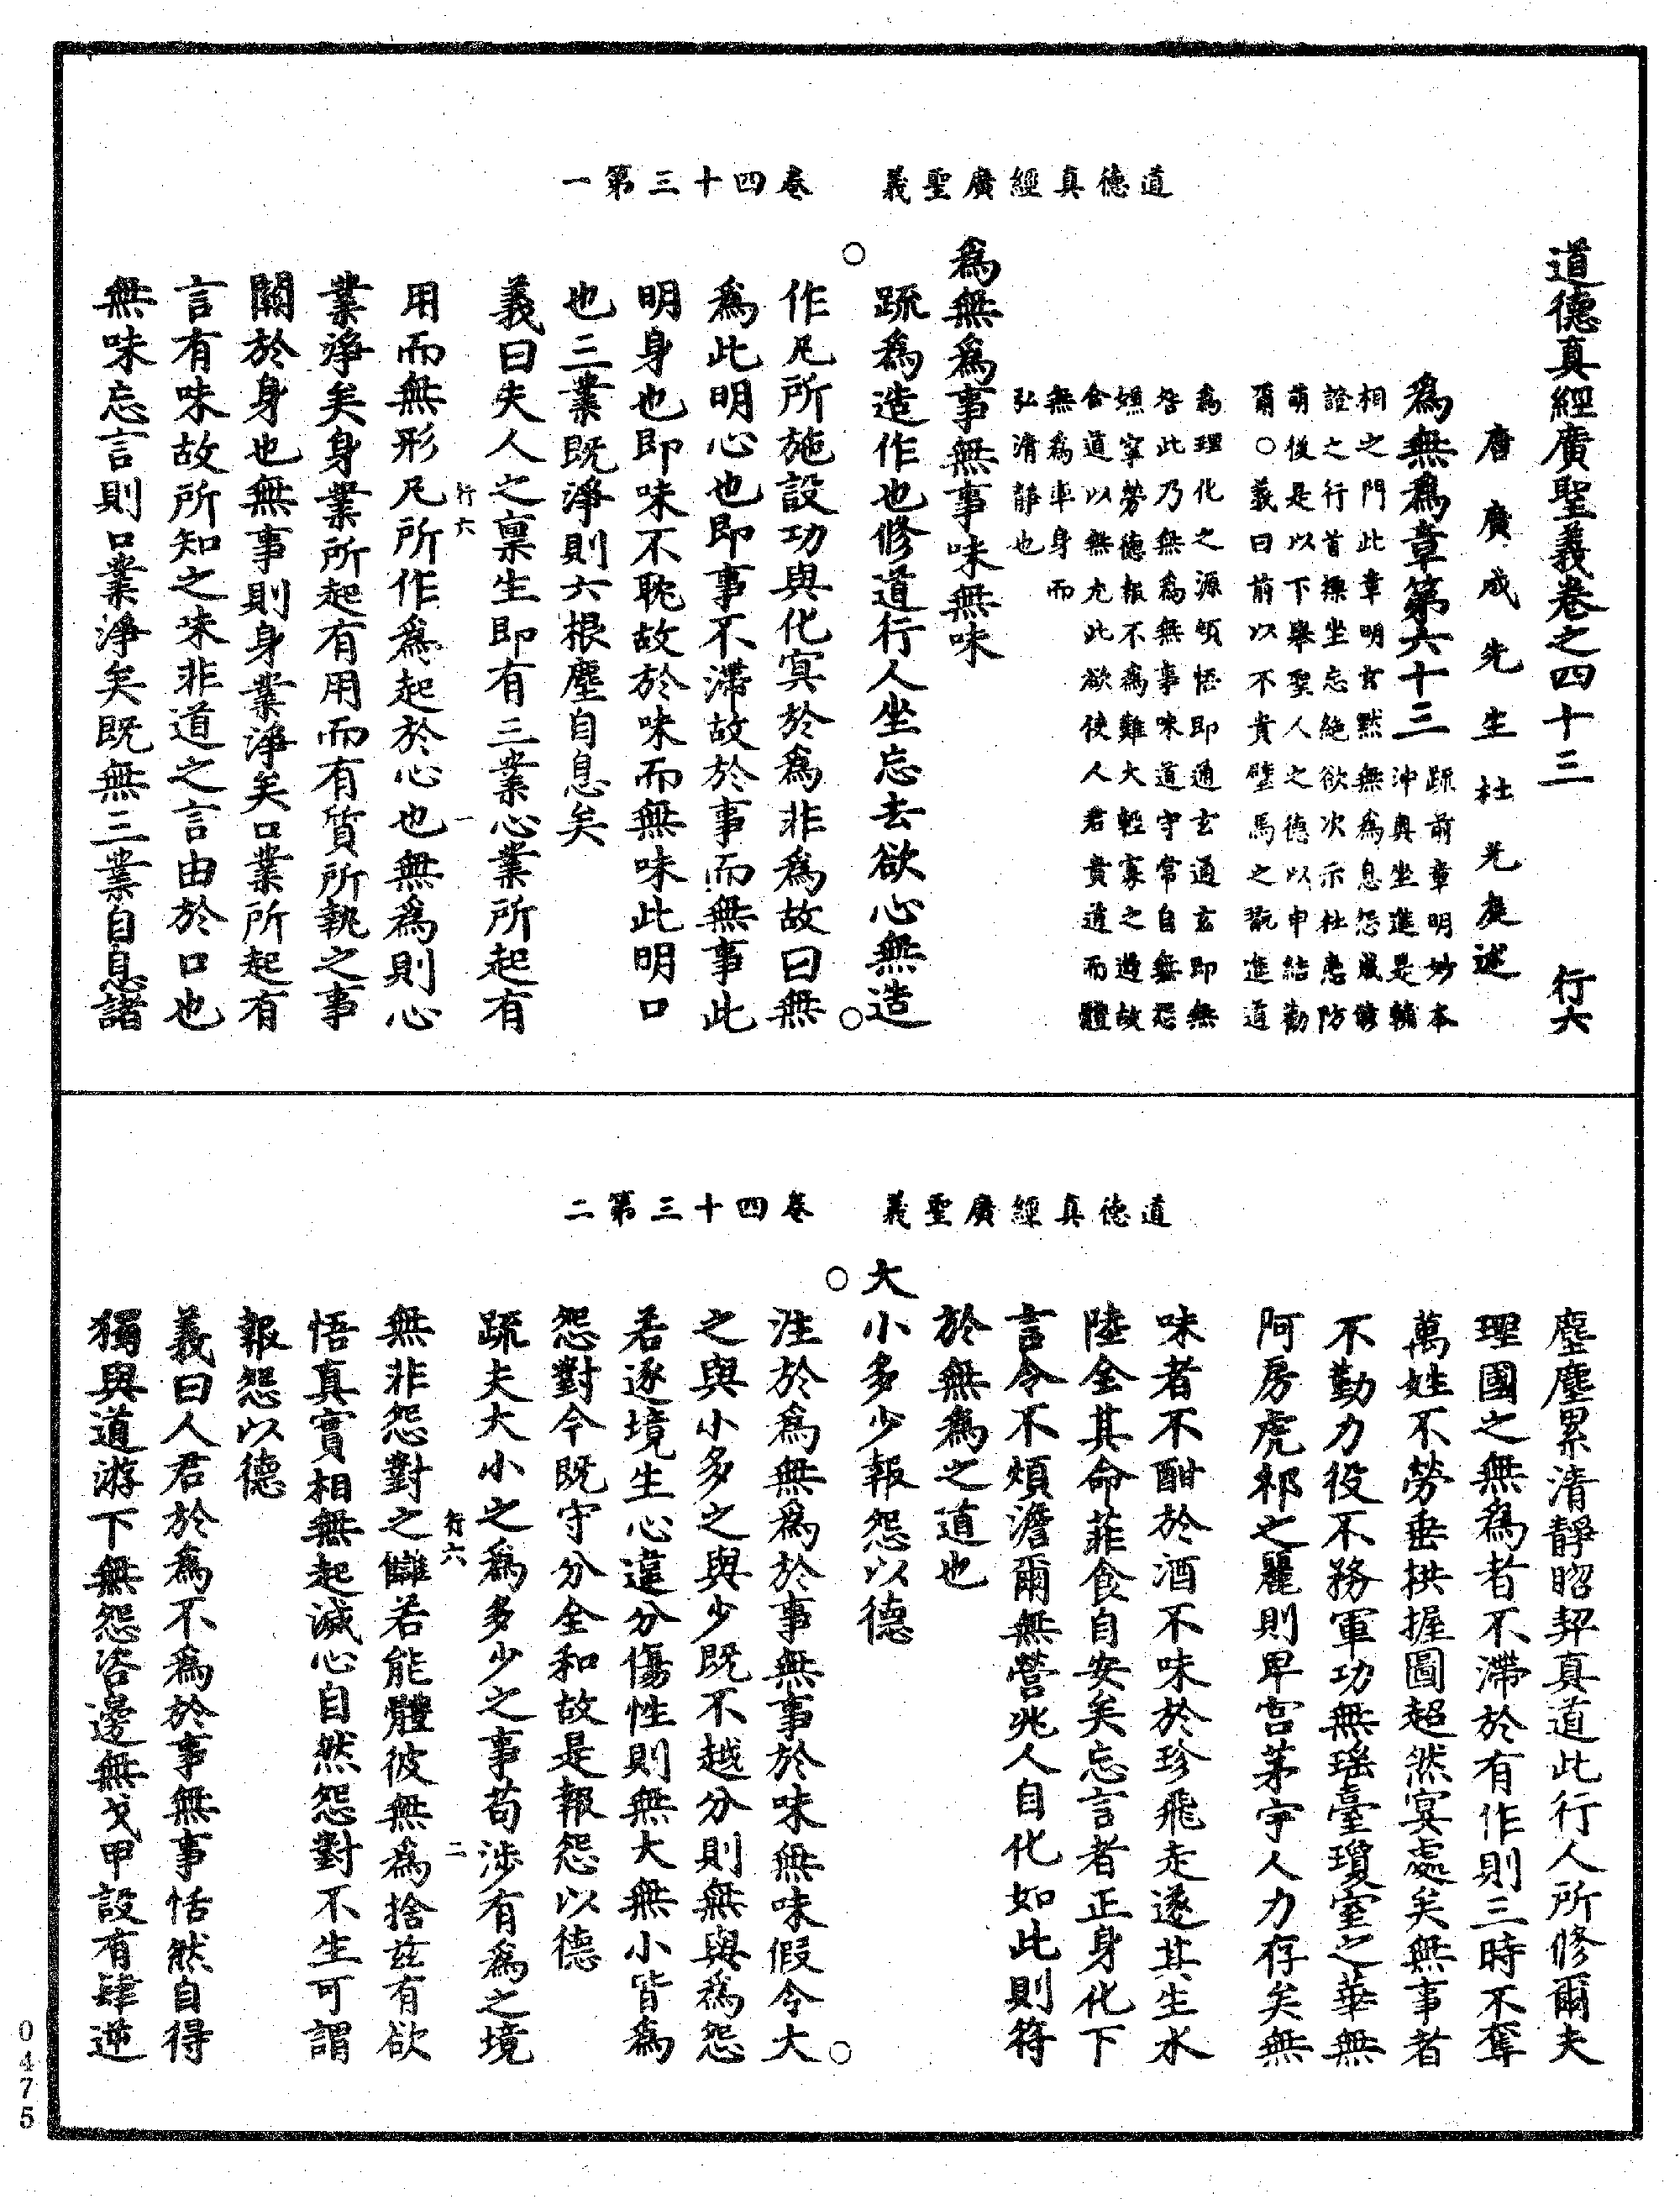 道德真經廣聖義　卷四十三第一
道德真經廣聖義卷之四十三　行六
唐廣成先生杜光庭述
為無為章第六十三
疏前章明妙本沖奧坐進是輔
相之門此章明玄默無為息怨感聖
證之行首標坐忘絕欲次示杜患防
萌後是以下舉聖人之德以申結勸
爾○義曰前以不貴璧馬之翫進道
為理化之源頓悟即通玄通玄即無
咎此乃無為無事味道守常自無怨
嫌寧勞德報不為難大輕寡之過故
合道以無尤此欲使人君貴道而體
無為率身而
弘清靜也
為無為事無事味無味
○疏為造作也修道行人坐忘去欲心無造
作凡所施設功與化冥於為非為故曰無
為此明心也即事不滯故於事而無事此
明身也即味不耽故於味而無味此明口
也三業既淨則六根塵自息矣○
義曰夫人之稟生即有三業心業所起有
行六　一
用而無形凡所作為起於心也無為則心
業淨矣身業所起有用而有質所執之事
關於身也無事則身業淨矣口業所起有
言有味故所知之味非道之言由於口也
無味忘言則口業淨矣既無三業自息諸
道德真經廣聖義　卷四十三第二
塵塵累清靜昭契真道此行人所修爾夫
理國之無為者不滯於有作則三時不奪
萬姓不勞垂拱握圖超然冥處矣無事者
不勤力役不務軍功無瑤臺瓊室之華無
阿房虎祁之麗則卑宮茅宇人力存矣無
味者不酣於酒不味於珍飛走遂其生水
陸全其命菲食自安矣忘言者正身化下
言令不煩澹爾無營兆人自化如此則符
於無為之道也
大小多少報怨以德
○注於為無為於事無事於味無味假令大
之與小多之與少既不越分則無與為怨
若逐境生心違分傷性則無大無小皆為
怨對今既守分全和故是報怨以德○
疏夫大小之為多少之事苟涉有為之境
行六　二
無非怨對之讎若能體彼無為捨茲有欲
悟真實相無起滅心自然怨對不生可謂
報怨以德
義曰人君於為不為於事無事恬然自得
獨與道游下無怨咨邊無戈甲設有肆逆
0475